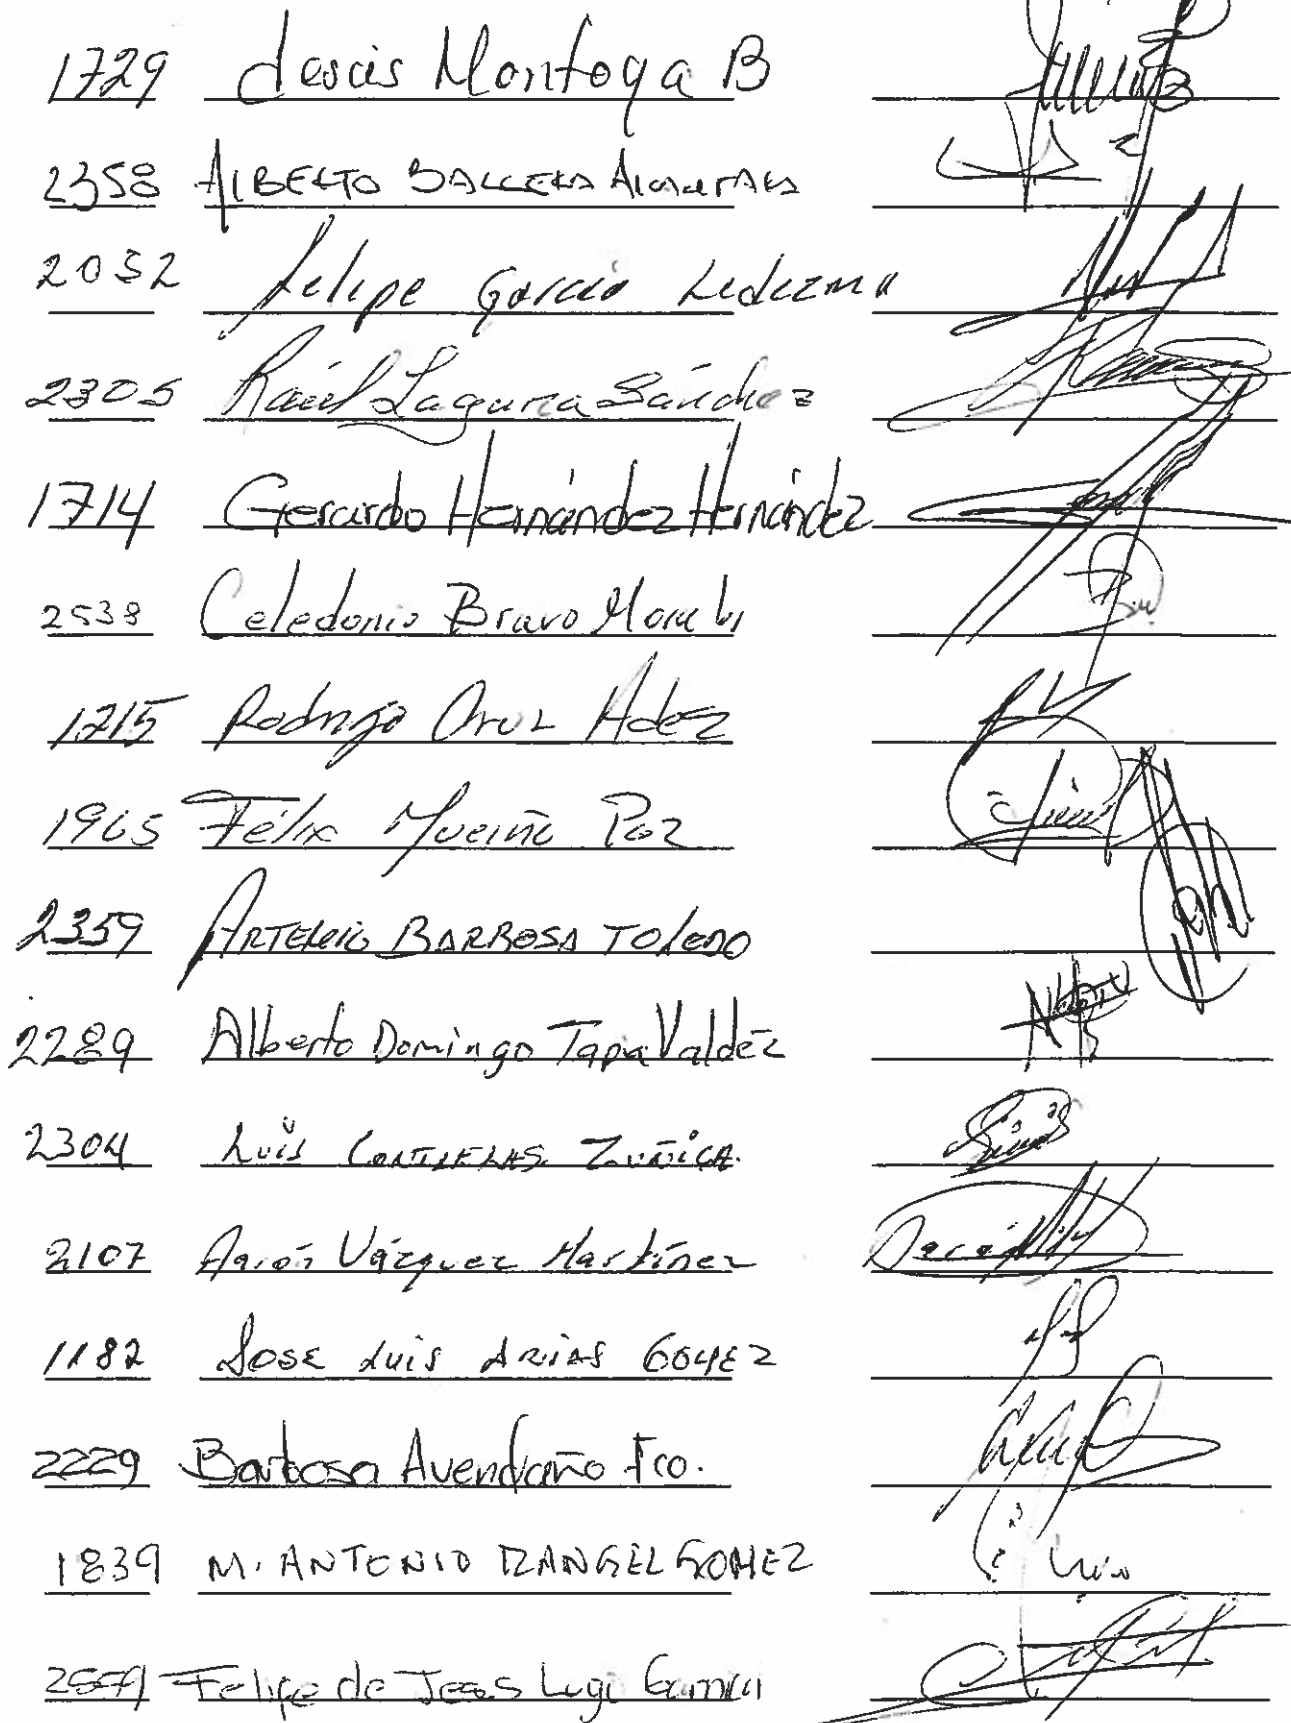 1729 Jesús Montoya B
2358 ALBERTO BALLEZA
2032 Felipe García Ledezma
2305 Raúl Laguna Sánchez
1714 Gerardo Hernández Hernández
2538 Celedonio Bravo Morales
1715 Rodrigo Cruz Hdez
1965 Félix Paz
2359 ARTEMIO BARBOSA TOLEDO
2289 Alberto Domingo Tapia Valdéz
2304 Luis CONTRERAS ZUÑIGA.
2107 Aarón Vázquez Martínez
1182 JOSE LUIS ARIAS GOMEZ
2229 Barbosa Avendaño Fco.
1839 M. ANTONIO RANGEL GOMEZ
Felipe de Jesus Lugo